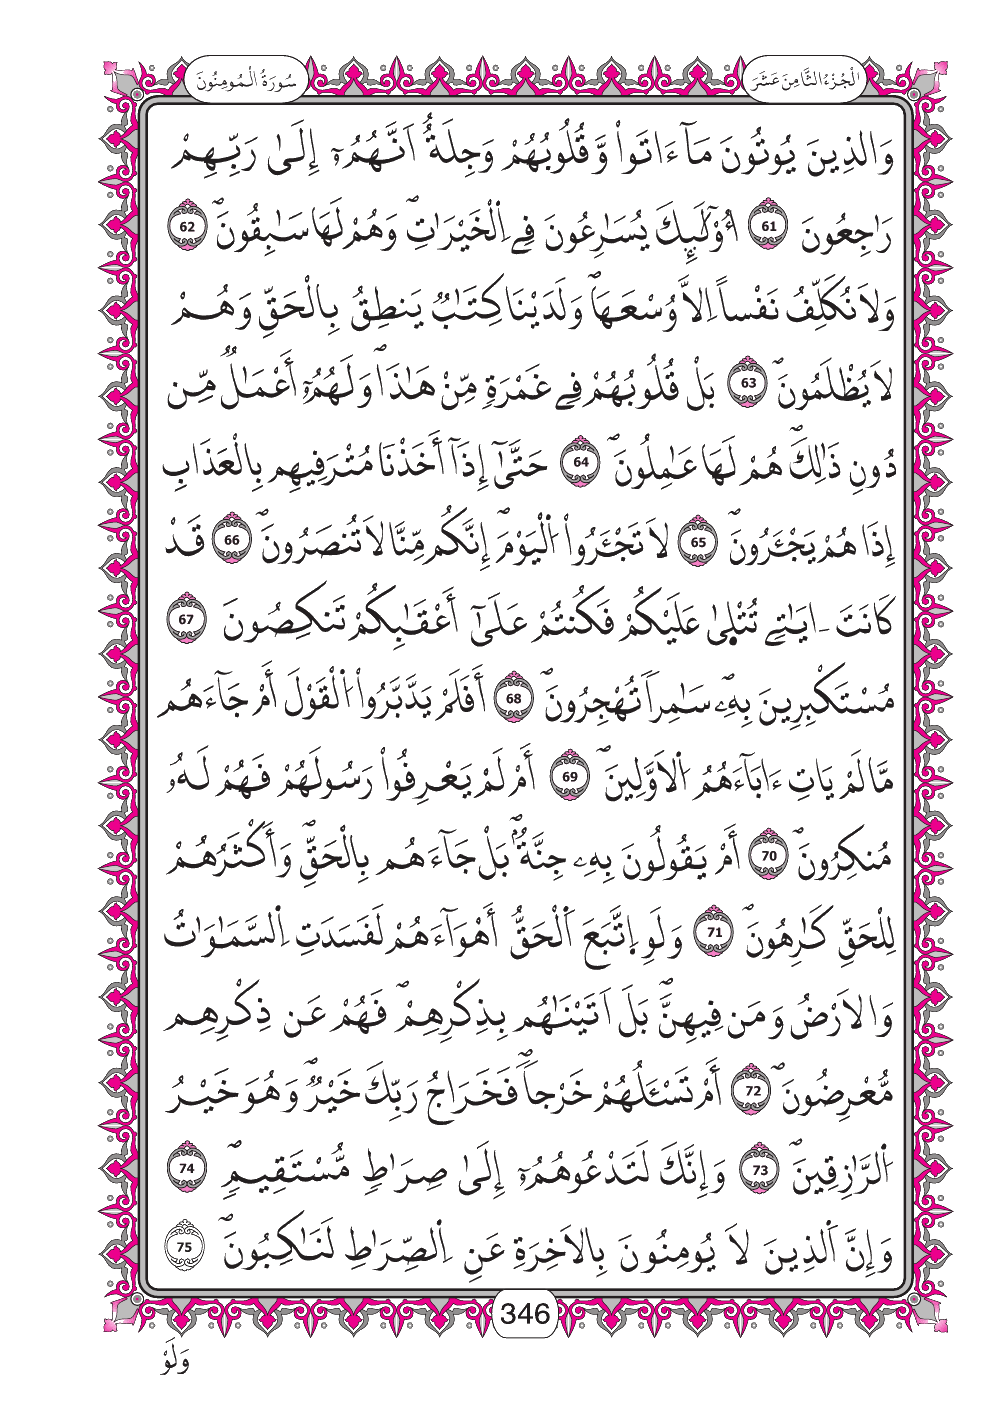 سُورَةُ الْمُومِنُونَ
الْجُزْءُ الثَّامِنَ عَشَرَ
وَالذِينَ يُوتُونَ مَآ ءَاتَواْ وَّقُلُوبُهُمْ وَجِلَةٌ اَنَّهُمُۥٓ إِلَىٰ رَبِّهِمْ
رَٰجِعُونَ 61 أُوْلَٰٓئِكَ يُسَٰرِعُونَ فِے اِ۬لْخَيْرَٰتِۖ وَهُمْ لَهَا سَٰبِقُونَۖ 62
وَلَا نُكَلِّفُ نَفْساً اِلَّا وُسْعَهَاۖ وَلَدَيْنَا كِتَٰبٞ يَنطِقُ بِالْحَقِّ وَهُمْ
لَا يُظْلَمُونَۖ 63 بَلْ قُلُوبُهُمْ فِے غَمْرَةٖ مِّنْ هَٰذَاۖ وَلَهُمُۥٓ أَعْمَٰلٞ مِّن
دُونِ ذَٰلِكَۖ هُمْ لَهَا عَٰمِلُونَۖ 64 حَتَّىٰٓ إِذَآ أَخَذْنَا مُتْرَفِيهِم بِالْعَذَابِ
إِذَا هُمْ يَجْـَٔرُونَۖ 65 لَا تَجْـَٔرُواْ اُ۬لْيَوْمَۖ إِنَّكُم مِّنَّا لَا تُنصَرُونَۖ 66 قَدْ
كَانَتَ ـ ايَٰتِے تُتْل۪ىٰ عَلَيْكُمْ فَكُنتُمْ عَلَىٰٓ أَعْقَٰبِكُمْ تَنكِصُونَ 67
مُسْتَكْبِرِينَ بِهِۦۖ سَٰمِراٗ تُهْجِرُونَۖ 68 أَفَلَمْ يَدَّبَّرُواْ اُ۬لْقَوْلَ أَمْ جَآءَهُم
مَّا لَمْ يَاتِ ءَابَآءَهُمُ اُ۬لَاوَّلِينَۖ 69 أَمْ لَمْ يَعْرِفُواْ رَسُولَهُمْ فَهُمْ لَهُۥ
مُنكِرُونَۖ 70 أَمْ يَقُولُونَ بِهِۦ جِنَّةُۢۖ بَلْ جَآءَهُم بِالْحَقِّۖ وَأَكْثَرُهُمْ
لِلْحَقِّ كَٰرِهُونَۖ 71 وَلَوِ اِ۪تَّبَعَ اَ۬لْحَقُّ أَهْوَآءَهُمْ لَفَسَدَتِ اِ۬لسَّمَٰوَٰتُ
وَالَارْضُ وَمَن فِيهِنَّۖ بَلَ اَتَيْنَٰهُم بِذِكْرِهِمْۖ فَهُمْ عَن ذِكْرِهِم
مُّعْرِضُونَۖ 72 أَمْ تَسْـَٔلُهُمْ خَرْجاٗۖ فَخَرَاجُ رَبِّكَ خَيْرٞۖ وَهُوَ خَيْرُ
اُ۬لرَّٰزِقِينَۖ 73 وَإِنَّكَ لَتَدْعُوهُمُۥٓ إِلَىٰ صِرَٰطٖ مُّسْتَقِيمٖۖ 74
وَإِنَّ اَ۬لذِينَ لَا يُومِنُونَ بِالَاخِرَةِ عَنِ اِ۬لصِّرَٰطِ لَنَٰكِبُونَۖ 75
346
وَلَوْ